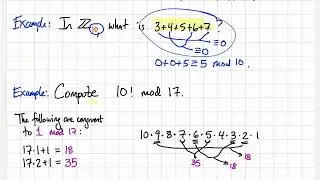 Example: In ℤ₁₀ what is 3+4+5+6+7 ?
≡0
≡0
0+0+5≡5 mod 10.
Example: Compute 10! mod 17.
The following are congruent
to 1 mod 17:
17·1+1=18
17·2+1=35
10·9·8·7·6·5·4·3·2·1
35
18
18